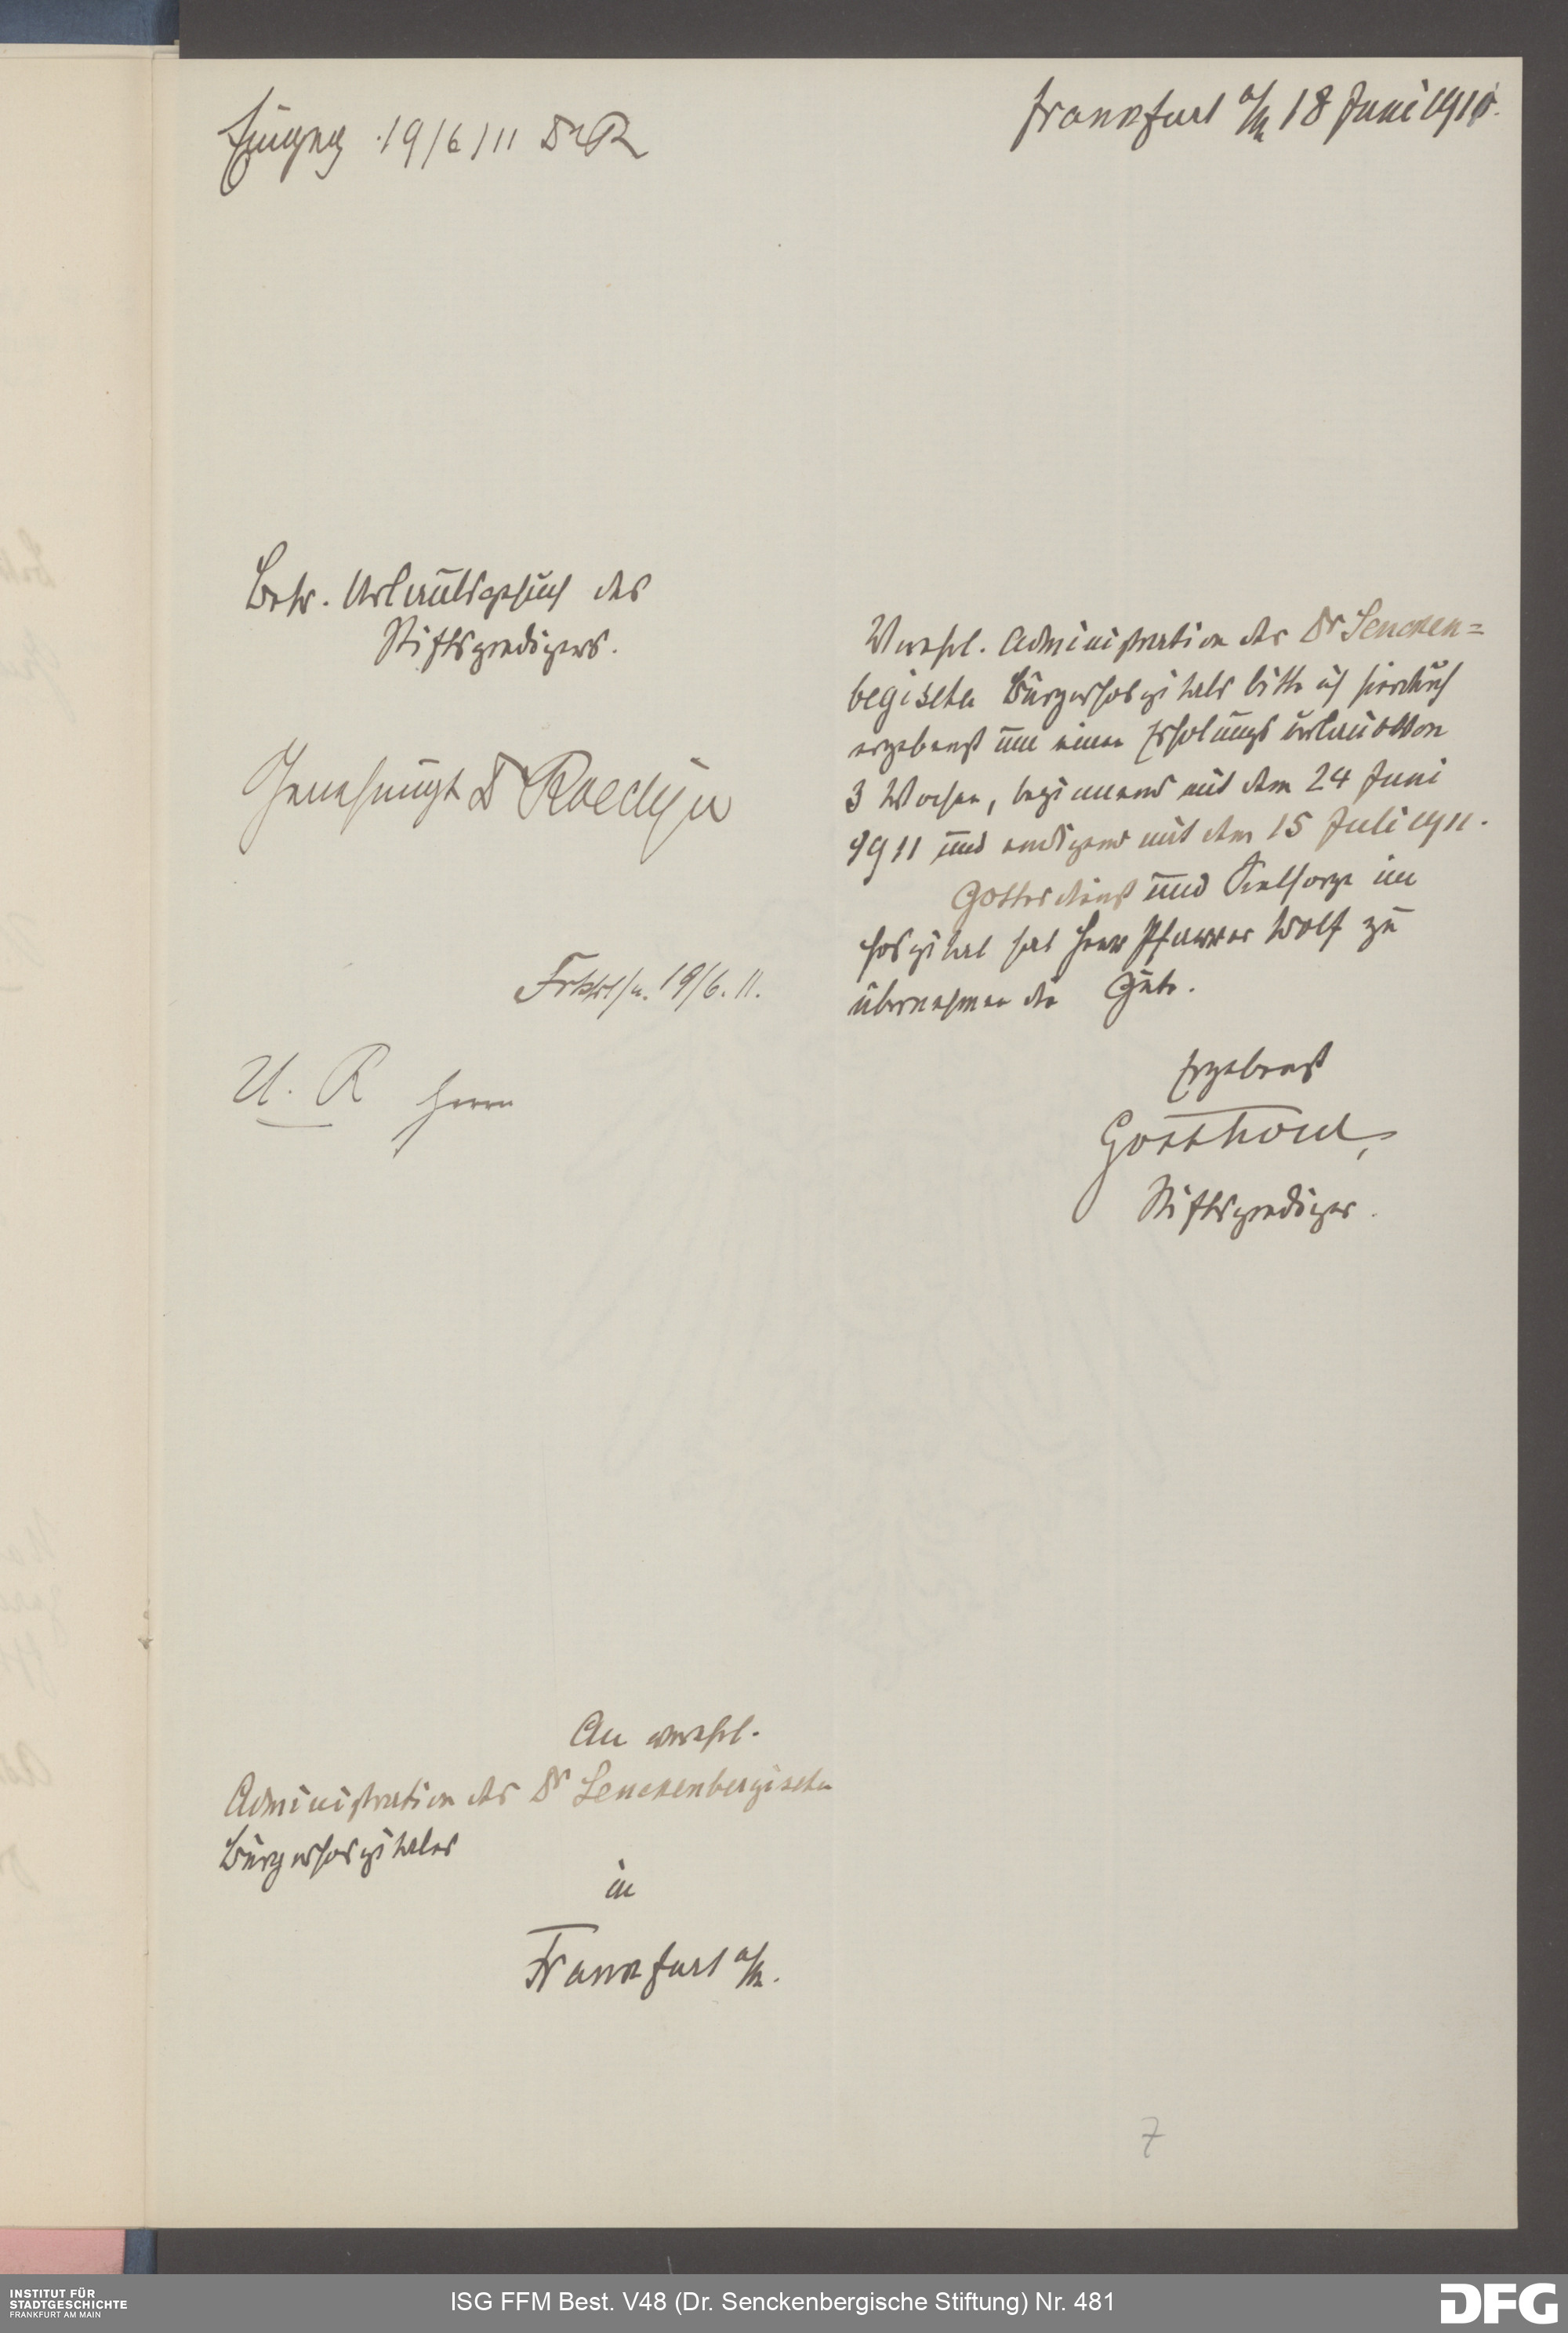 Eingang 19/6/11 Dr R
Frankfurt a/M 18 Juni 1911.
Betr. Urlaubsgesuch des
Stiftspredigers.
Genehmigt Dr Roediger
Frkft/M. 19/6. 11.
U. R Herrn
Verehrl. Administration des Dr Sencken=
begischen Bürgerhospitals bitte ich hierdurch
ergebenst um einen Erholungsurlaub von
3 Wochen, beginnend mit dem 24 Juni
1911 und endigend mit dem 15 Juli 1911.
Gottesdienst und Seelsorge im
Hospital hat Herr Pfarrer Wolf zu
übernehmen die Güte.
Ergebenst
Gotthold,
Stiftsprediger.
An verehrl.
Administration des Dr Senckenbergischen
Bürgerhospitales
in
Frankfurt a/M.
7
INSTITUT FÜR
STADTGESCHICHTE
FRANKFURT AM MAIN
ISG FFM Best. V48 (Dr. Senckenbergische Stiftung) Nr. 481
DFG